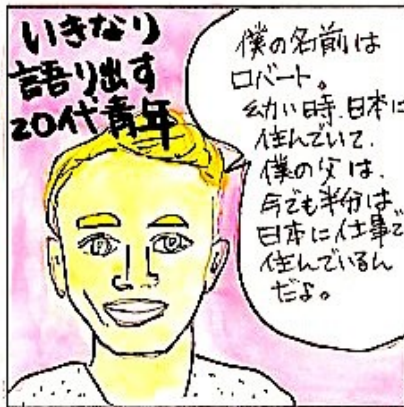 いきなり
語り出す
20代青年
僕の名前は
ロバート。
幼い時、日本に
住んでいて、
僕の父は、
今でも半分は、
日本に仕事で
住んでいるん
だよ。